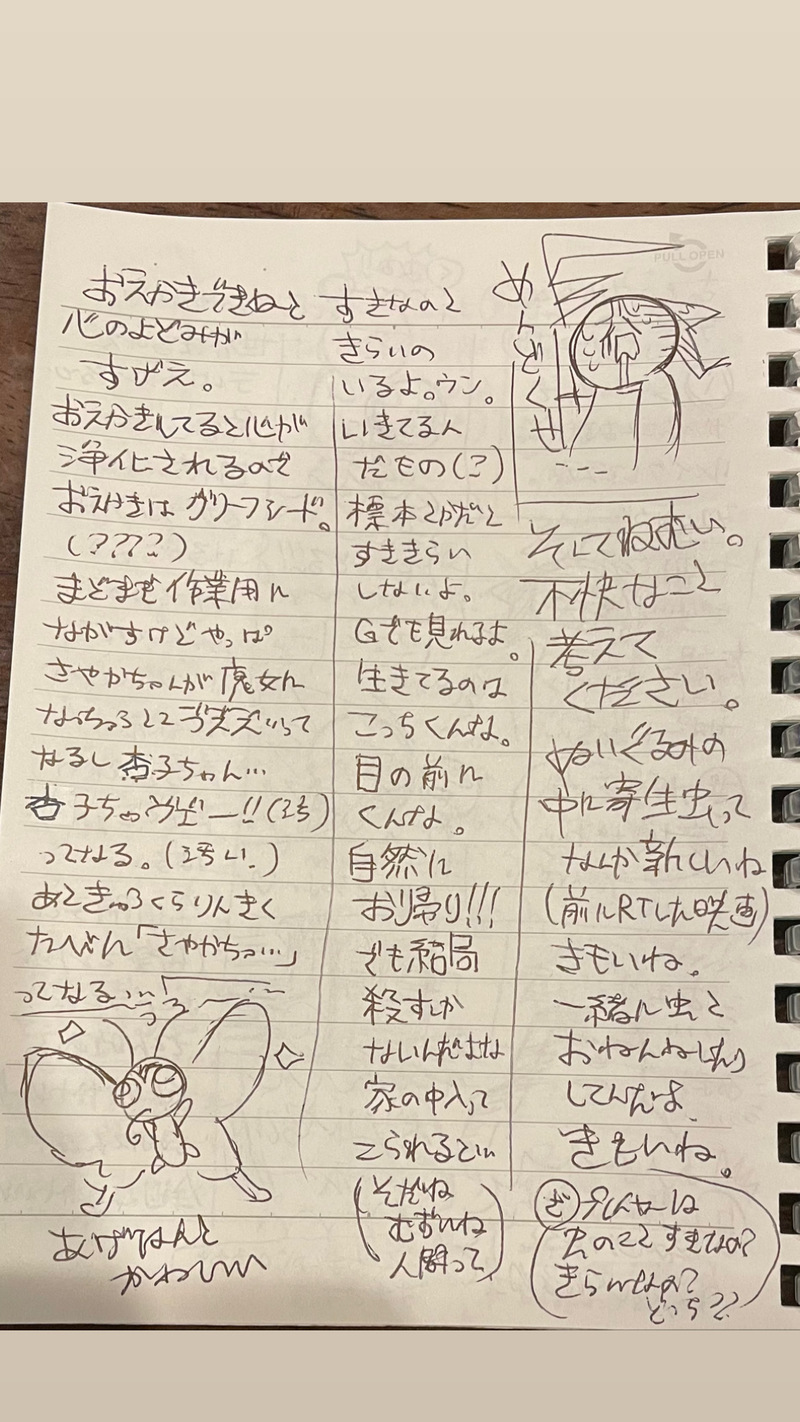 おえかきできねーと
心のよどみが
すげえ。
おえかきしてると心が
浄化されるので
おえかきは グリーフシード。
(????)
まどまぎ作業用に
ながすけどやっぱ
さやかちゃんが魔女に
なっちゃうとこ
って
なるし杏子ちゃん…
杏子ちゃ
ってなる。
あときゅうくらりんきく
たびに「さやかちゃ…」
ってなる…
あげはほんと
かわいい
すきなのと
きらいの
いるよ。ウン。
いきてるん
だもの(?)
標本とかだと
すききらい
しないよ。
Gでも見れるよ。
生きてるのは
こっちくんな。
目の前に
くんな。
自然に
お帰り!!!
でも結局
殺すしか
ないんだよな
家の中入って
こられると…
(そだね
むずいね
人間って)
めんどくせー
PULL OPEN
そしてねむい。
不快なこと
考えて
ください。
ぬいぐるみの
中に寄生虫って
なんか新しいね
(前にRTした映画)
きもいね。
一緒に虫と
おねんねしたり
してんだよ
きもいね。
虫のことすきなの?
きらいなの?
どっち??